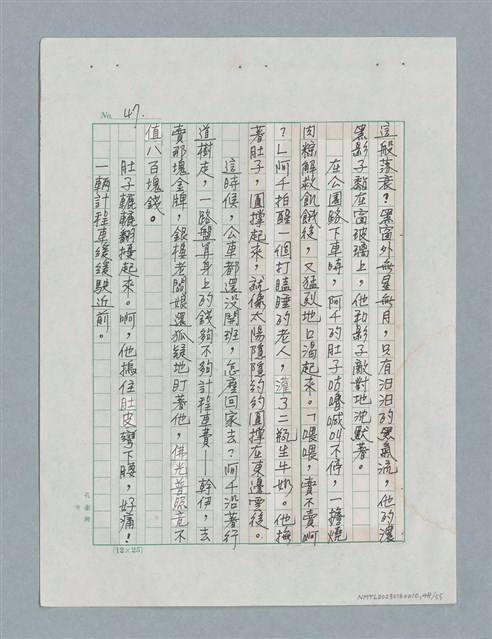 No. 47.
這般落衰?黑窗外無星無月,只有汩汩的黑氣流,他的濃
黑影子黏在窗玻璃上,他和影子敵對地沈默著。
在公園路下車時,阿千的肚子咕嚕喊叫不停,一擔燒
肉粽解救飢餓後,又猛烈地口渴起來。「喂喂,賣不賣啊
?」阿千拍醒一個打瞌睡的老人,灌了二瓶生牛奶。他撫
著肚子,圓撐起來,就像太陽隱隱約約圓撐在東邊雲後。
這時候,公車都還没開班,怎麼回家去?阿千沿著行
道樹走,一路盤算身上的錢夠不夠計程車費——幹伊,去
賣那塊金牌,銀樓老闆娘還狐疑地盯著他,佛光普照竟不
值八百塊錢。
肚子轆轆翻攪起來。啊,他摀住肚皮彎下腰,好痛!
一輛計程車緩緩駛近前。
(12×25)
NMTL20230180010,48/55